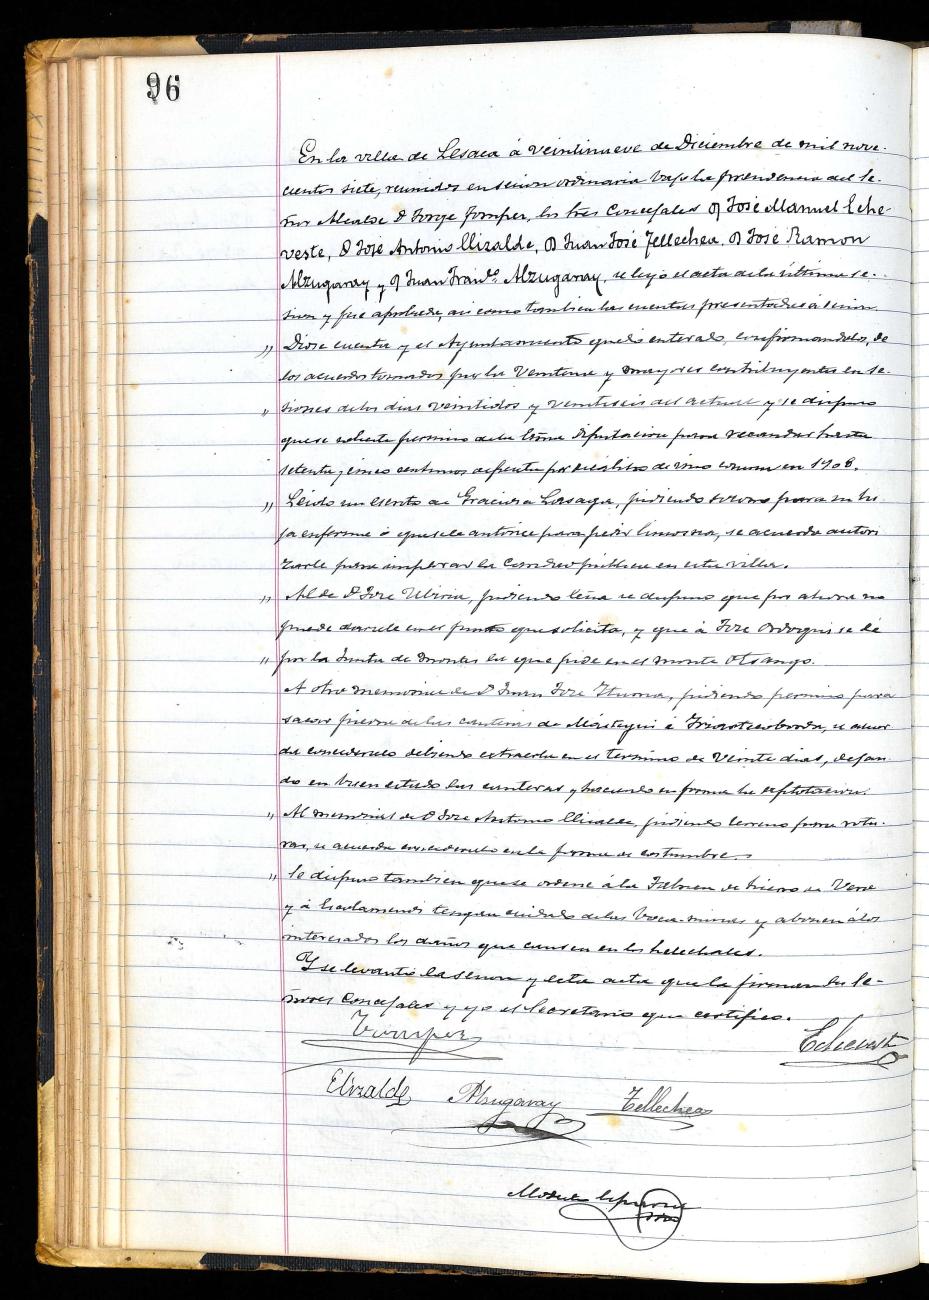 96
En la villa de Lesaca á veintinueve de Diciembre de mil nove-
cientos siete, reunidos en sesion ordinaria bajo la presidencia del Se-
ñor Alcalde D Jorge Tomper, los tres Concejales D José Manuel Eche-
veste, D José Antonio Elizalde, D Juan José Tellechea, D José Ramon
Alzugaray y D Juan Franco. Alzugaray, se leyó el acta de la última se-
sion y fue aprobada, asi como tambien las cuentas presentadas á sesion.
" Diose cuenta y el Ayuntamiento quedó enterado, confirmandolos, de
los acuerdos tomados por la Veintena y mayores contribuyentes en se-
" siones de los dias veintidos y veintiseis del actual y se dispuso
que se solicite permiso de la Excma Diputacion para recaudar hasta
setenta y cinco centimos de peseta por decálitro de vino comun en 1908.
" Leido un escrito de Graciosa Lasaga, pidiendo socorro para su hi-
ja enferma ó que se le autorice para pedir limosna, se acuerda autori
zarle para implorar la Caridad pública en esta villa.
" Al de D José Ubiria, pidiendo leña se dispuso que por ahora no
puede darsele en el punto que solicita, y que á José Ordoqui se dé
" por la Junta de montes la que pide en el monte Otsango.
A otro memorial de D Juan José Iturria, pidiendo permiso para
sacar piedra de las canteras de é se acuer
da concederselo debiendo extraerla en el termino de veinte dias, dejan
do en buen estado las canteras y haciendo en forma la explotacion.
" Al memorial de D José Antonio Elizalde, pidiendo terreno para rotu-
rar, se acuerda concederselo en la forma de costumbre.
" Se dispuso tambien que se ordene á la Fábrica de hierro de Vera
y á tengan cuidado de las boca-minas y abonen á los
interesados los daños que causen en los helechales.
Y se levantó la sesion y esta acta que la firman los Se-
ñores Concejales y yo el Secretario que certifico.
Tomper
Echeveste
Elizalde Alzugaray Tellechea